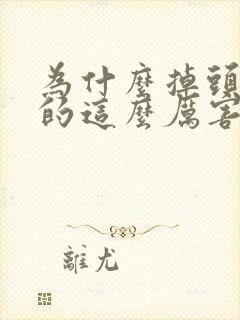 為什麼掉頭
的這麼厲害
離尤